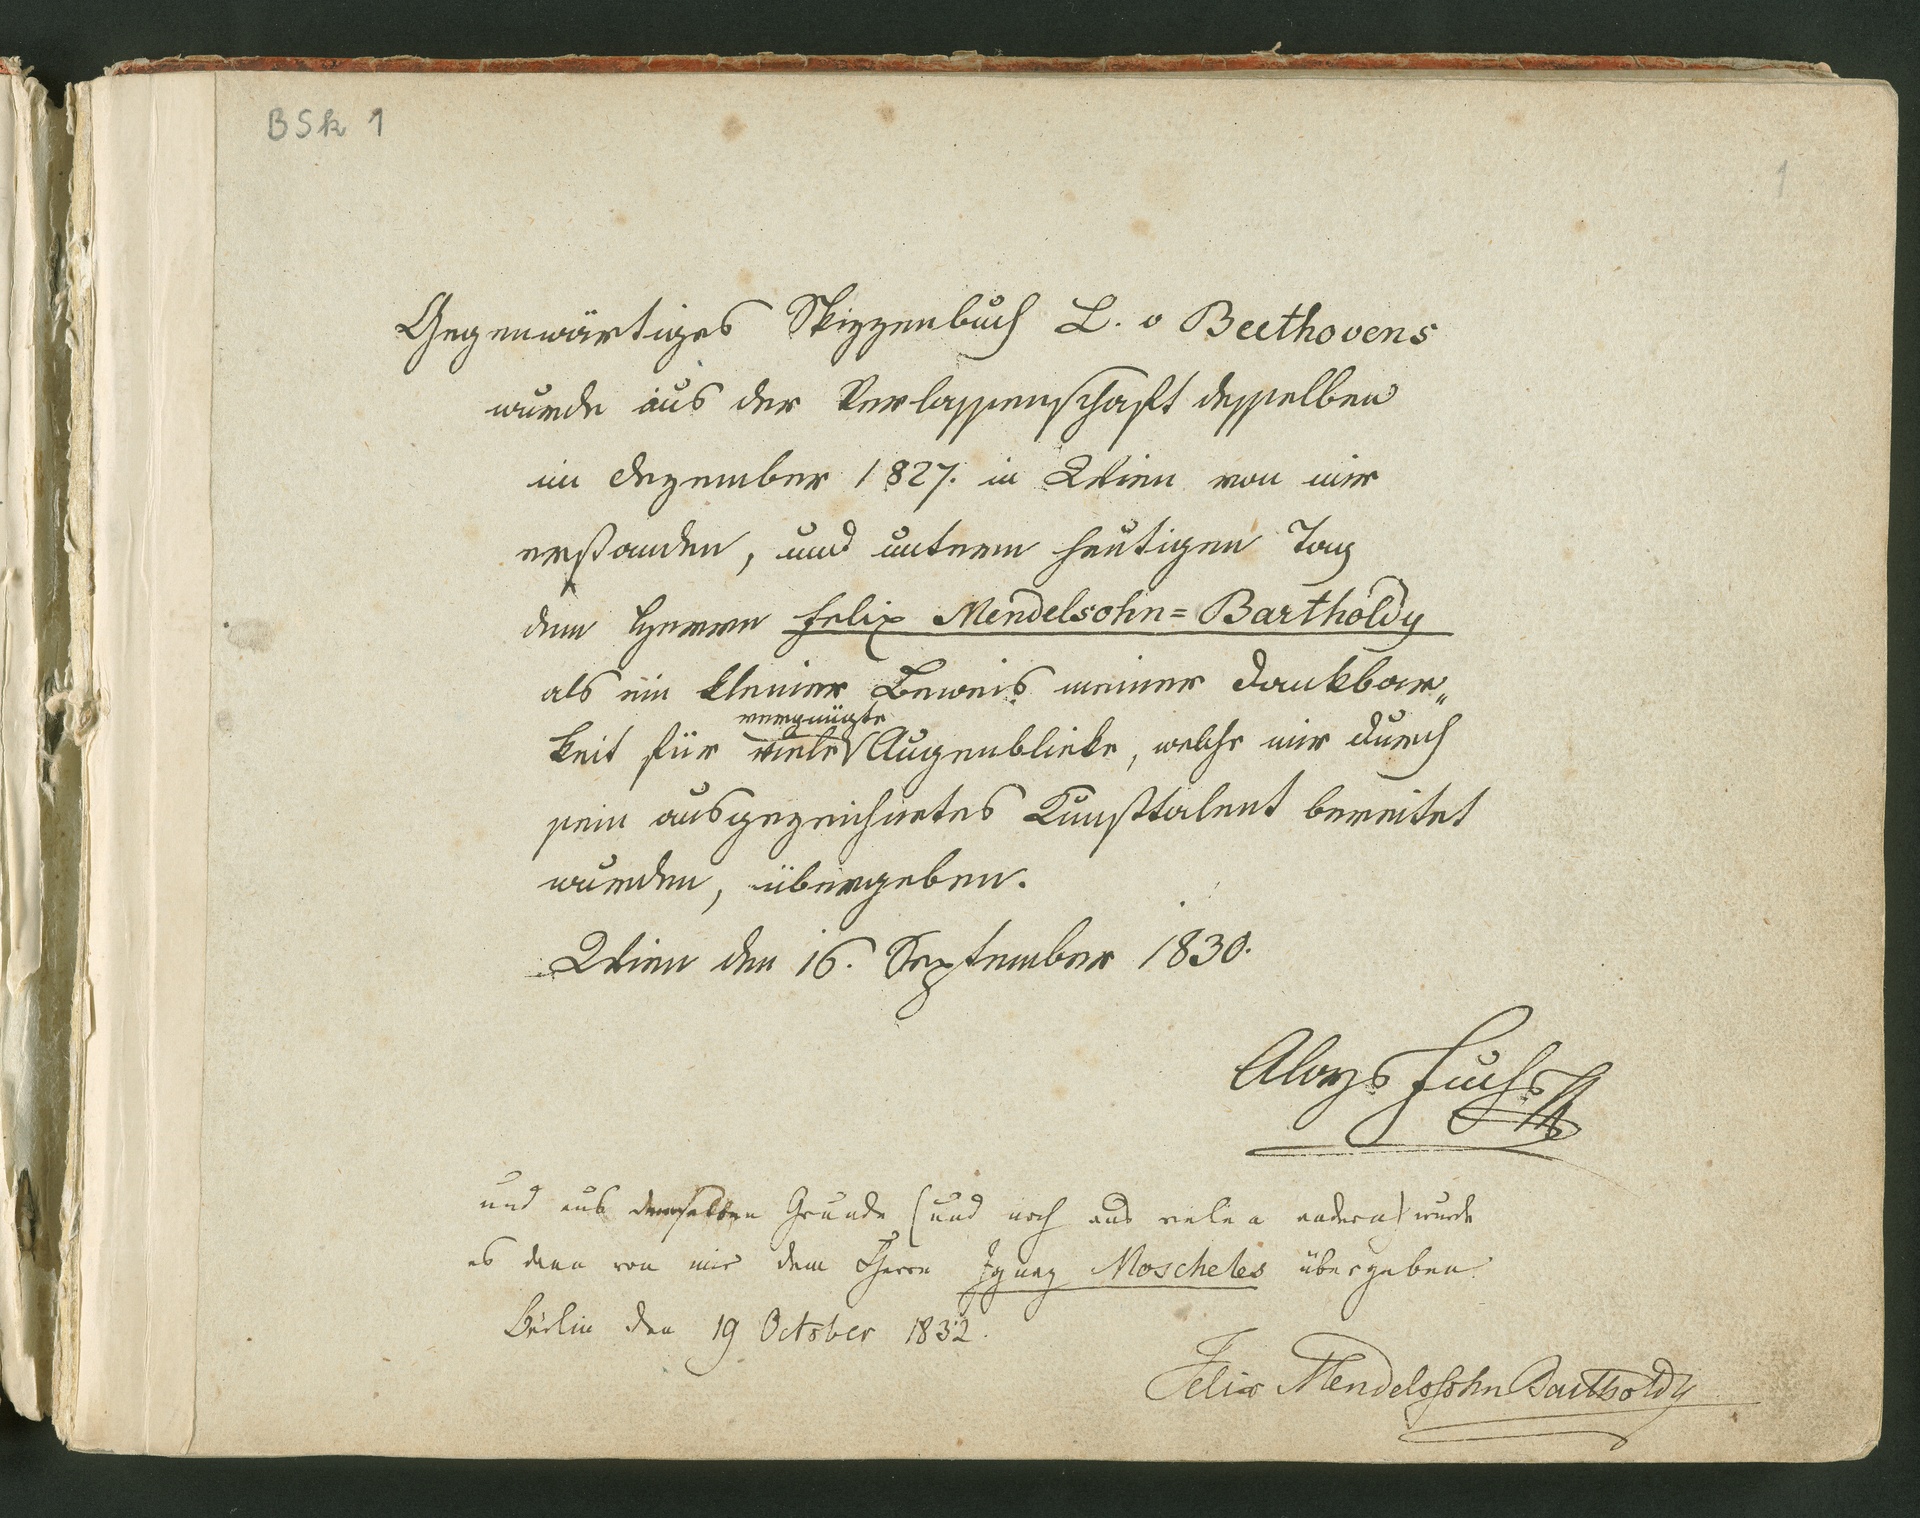 BSk 1
1
Gegenwärtiges Skizzenbuch L. v Beethovens
wurde aus der Verlassenschaft desselben
im Dezember 1827. in Wien von mir
erstanden, und unterm heutigen Tag
dem Herrn Felix Mendelsohn=Bartholdy
als ein kleiner Beweis meiner Dankbar„
vergnügte
keit für viele Augenblicke, welche mir durch
sein ausgezeichnetes Kunsttalent bereitet
wurden, übergeben.
Wien den 16. September 1830.
Aloys Fuchs
und aus demselben Grunde (und noch aus vielen andern) wurde
es dann von mir dem Herrn Ignaz Moscheles übergeben.
Berlin den 19 October 1832.
Felix Mendelssohn Bartholdy